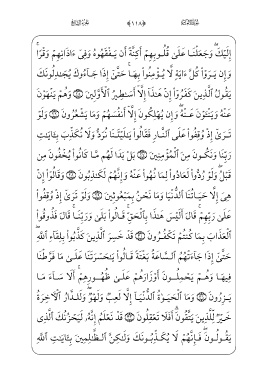 إِلَيْكَ ۖ وَجَعَلْنَا عَلَىٰ قُلُوبِهِمْ أَكِنَّةً أَن يَفْقَهُوهُ وَفِىٓ ءَاذَانِهِمْ وَقْرًا ۚ
وَإِن يَرَوْا۟ كُلَّ ءَايَةٍ لَّا يُؤْمِنُوا۟ بِهَا ۚ حَتَّىٰٓ إِذَا جَآءُوكَ يُجَٰدِلُونَكَ
يَقُولُ ٱلَّذِينَ كَفَرُوٓا۟ إِنْ هَٰذَآ إِلَّآ أَسَٰطِيرُ ٱلْأَوَّلِينَ ۝ وَهُمْ يَنْهَوْنَ
عَنْهُ وَيَنْـَٔوْنَ عَنْهُ ۖ وَإِن يُهْلِكُونَ إِلَّآ أَنفُسَهُمْ وَمَا يَشْعُرُونَ ۝ وَلَوْ
تَرَىٰٓ إِذْ وُقِفُوا۟ عَلَى ٱلنَّارِ فَقَالُوا۟ يَٰلَيْتَنَا نُرَدُّ وَلَا نُكَذِّبَ بِـَٔايَٰتِ
رَبِّنَا وَنَكُونَ مِنَ ٱلْمُؤْمِنِينَ ۝ بَلْ بَدَا لَهُم مَّا كَانُوا۟ يُخْفُونَ مِن
قَبْلُ ۖ وَلَوْ رُدُّوا۟ لَعَادُوا۟ لِمَا نُهُوا۟ عَنْهُ وَإِنَّهُمْ لَكَٰذِبُونَ ۝ وَقَالُوٓا۟ إِنْ
هِىَ إِلَّا حَيَاتُنَا ٱلدُّنْيَا وَمَا نَحْنُ بِمَبْعُوثِينَ ۝ وَلَوْ تَرَىٰٓ إِذْ وُقِفُوا۟
عَلَىٰ رَبِّهِمْ ۚ قَالَ أَلَيْسَ هَٰذَا بِٱلْحَقِّ ۚ قَالُوا۟ بَلَىٰ وَرَبِّنَا ۚ قَالَ فَذُوقُوا۟
ٱلْعَذَابَ بِمَا كُنتُمْ تَكْفُرُونَ ۝ قَدْ خَسِرَ ٱلَّذِينَ كَذَّبُوا۟ بِلِقَآءِ ٱللَّهِ ۖ
حَتَّىٰٓ إِذَا جَآءَتْهُمُ ٱلسَّاعَةُ بَغْتَةً قَالُوا۟ يَٰحَسْرَتَنَا عَلَىٰ مَا فَرَّطْنَا
فِيهَا وَهُمْ يَحْمِلُونَ أَوْزَارَهُمْ عَلَىٰ ظُهُورِهِمْ ۚ أَلَا سَآءَ مَا
يَزِرُونَ ۝ وَمَا ٱلْحَيَوٰةُ ٱلدُّنْيَآ إِلَّا لَعِبٌ وَلَهْوٌ ۖ وَلَلدَّارُ ٱلْـَٔاخِرَةُ
خَيْرٌ لِّلَّذِينَ يَتَّقُونَ ۗ أَفَلَا تَعْقِلُونَ ۝ قَدْ نَعْلَمُ إِنَّهُۥ لَيَحْزُنُكَ ٱلَّذِى
يَقُولُونَ ۖ فَإِنَّهُمْ لَا يُكَذِّبُونَكَ وَلَٰكِنَّ ٱلظَّٰلِمِينَ بِـَٔايَٰتِ ٱللَّهِ